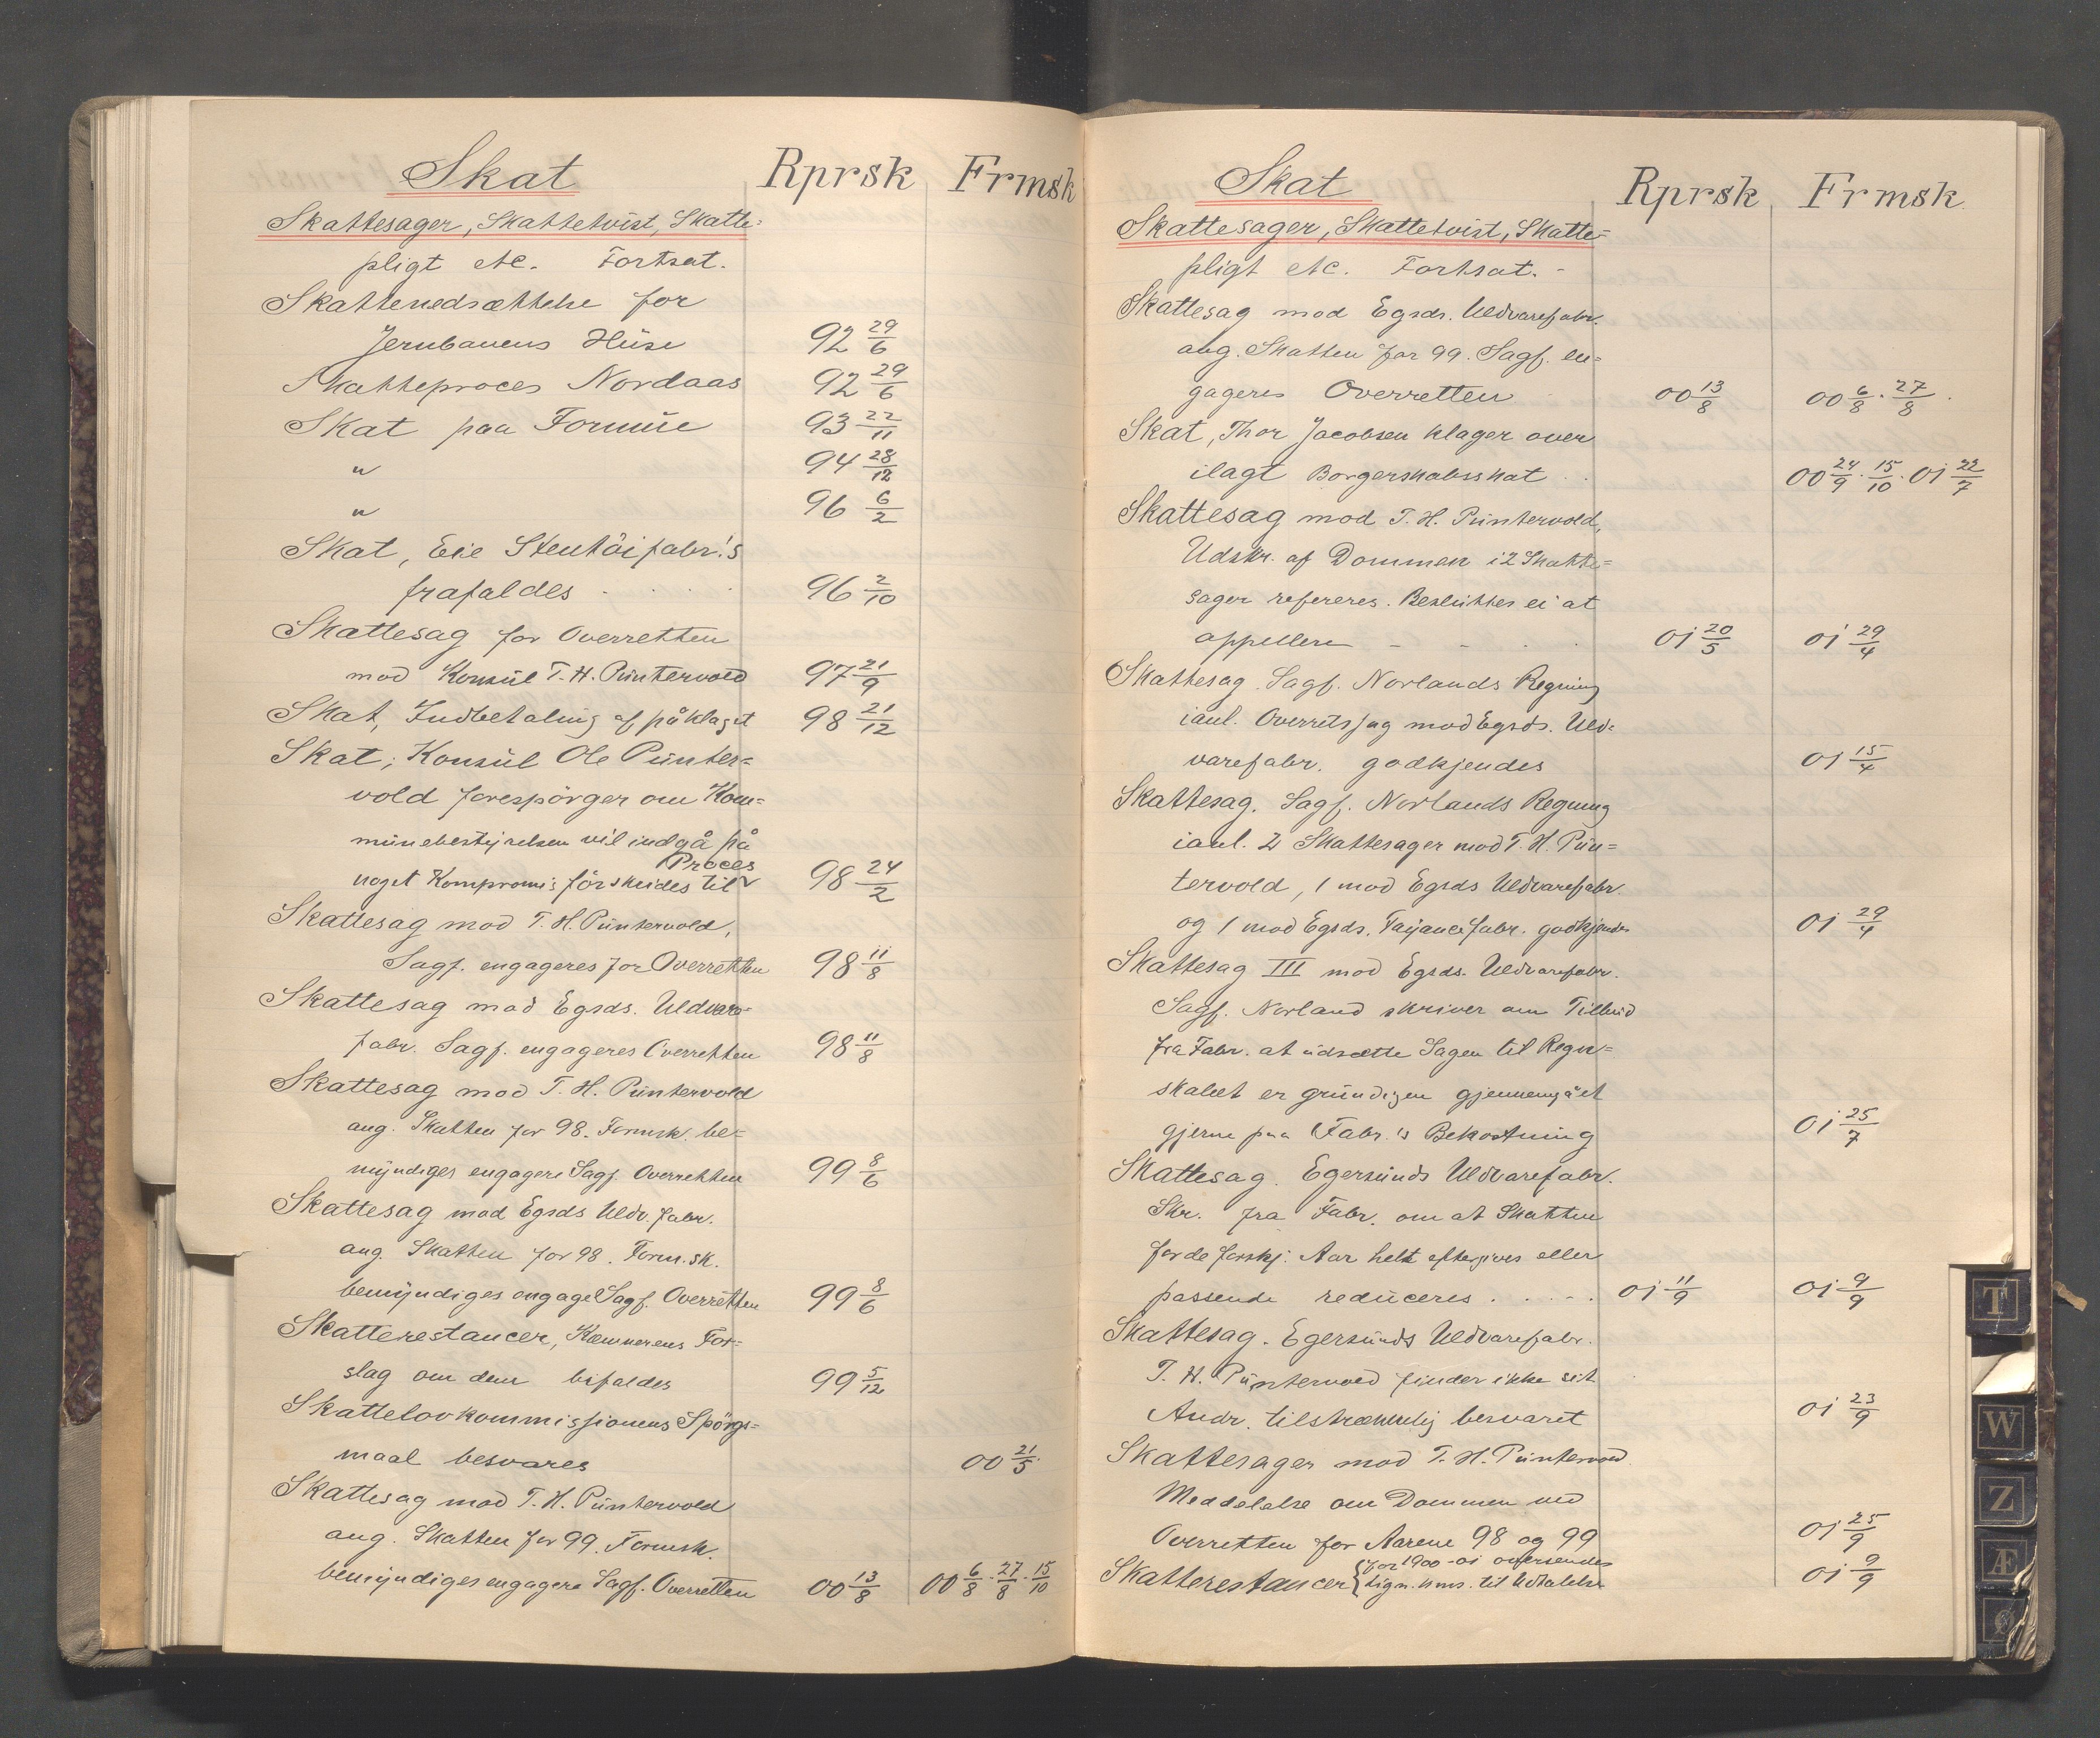 Skat Rprsk Frmsk
Skattesager, Skattetvist, Skatte=
pligt etc. Fortsat.
Skattenedsættelse for
Jernbanens Huse 92 29/6
Skatteproces Nordaas 92 29/6
Skat paa Formue 93 22/11
" 94 28/12
" 96 6/2
Skat, Eie Stentöifabr.'s
frafaldes . . . . 96 2/10
Skattesag for Overretten
mod Konsul T. H. Püntervold 97 21/9
Skat, Indbetaling af påklaget 98 21/12
Skat; Konsül Ole Pünter=
vold forespörger om Kom=
münebestyrelsen vil indgå på
Proces
noget Kompromis för skrides til 98 24/2
Skattesag mod T. H. Püntervold,
Sagf. engageres for Overretten 98 11/8
Skattesag mod Egsds. Uldvare=
fabr. Sagf. engageres Overretten 98 11/8
Skattesag mod T. H. Püntervold
ang. Skatten for 98. Formsk. be=
myndiges engagere Sagf. Overretten 99 8/6
Skattesag mod Egsds Uldv. fabr.
ang. Skatten for 98. Form.sk.
bemyndiges engage Sagf. Overretten 99 8/6
Skatterestancer, Kæmnerens For=
slag om dem bifaldes 99 5/12
Skattelovkommissionens Spörgs=
maal besvares 00 21/5
Skattesag mod T. H. Püntervold
ang. Skatten for 99. Formsk.
bemyndiges engagere Sagf. Overretten 00 13/8 00 6/8 . 27/8 . 15/10
Skat Rprsk Frmsk.
Skattesager, Skattetvist, Skatte=
pligt etc. Fortsat. -
Skattesag mod Egsds. Uldvarefabr.
ang. Skatten for 99. Sagf. en=
gageres Overretten 00 13/8 00 6/8 . 27/8 .
Skat, Thor Jacobsen klager over
ilagt Borgerskabsskat . . 00 24/9 . 15/10 . 01 22/7
Skattesag mod T. H. Püntervold,
Udskr. af Dommen i 2 Skatte=
sager refereres. Besluttes ei at
appellere - - . . 01 20/5 01 29/4
Skattesag. Sagf. Norlands Regning
ianl. Overretssag mod Egsds. Uld=
varefabr. godkjendes 01 15/4
Skattesag. Sagf. Norlands Regning
ianl. 2 Skattesager mod T. H. Pün=
tervold, 1 mod Egsds Uldvarefabr.
og 1 mod Egsds. Fayancefabr. godkjendes 01 29/4
Skattesag III mod Egsds. Uldvarefabr.
Sagf. Norland skriver om Tilbud
fra Fabr. at udsætte Sagen til Regn=
skabet er grundigen gjennemgået
gjerne paa Fabr.'s Bekostning 01 25/7
Skattesag. Egersunds Uldvarefabr.
Skr. fra Fabr. om at Skatten
for de forskj. Aar helt eftergives eller
passende reduceres . . . . . 01 11/9 01 9/9
Skattesag. Egersunds Uldvarefabr.
T. H. Püntervold finder ikke sit
Andr. tilstrækkelig besvaret 01 23/9
Skattesager mod T. H. Püntervold.
Meddelelse om Dommen ved
Overretten for Aarene 98 og 99 01 25/9
for 1900-01 oversendes
Skatterestancer { Lign.kms. til Udtalelse 01 9/9
T
W
Z
Æ
Ø